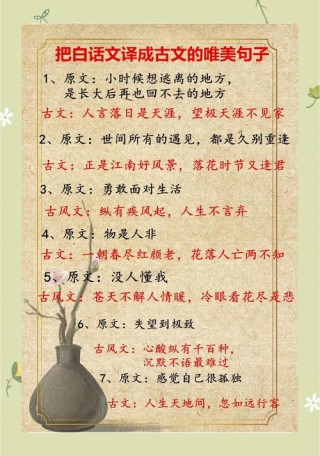 把白话文译成古文的唯美句子
1、原文：小时候想逃离的地方，
是长大后再也回不去的地方
古文：人言落日是天涯，望极天涯不见家
2、原文：世间所有的遇见，都是久别重逢
古文：正是江南好风景，落花时节又逢君
3、原文：勇敢面对生活
古风文：纵有疾风起，人生不言弃
4、原文：物是人非
古文：一朝春尽红颜老，花落人亡两不知
5、原文：没人懂我
古风文：苍天不解人情暖，冷眼看花尽是悲
6、原文：失望到极致
古风文：心酸纵有千百种，
沉默不语最难过
7、原文：感觉自己很孤独
古文：人生天地间，忽如远行客